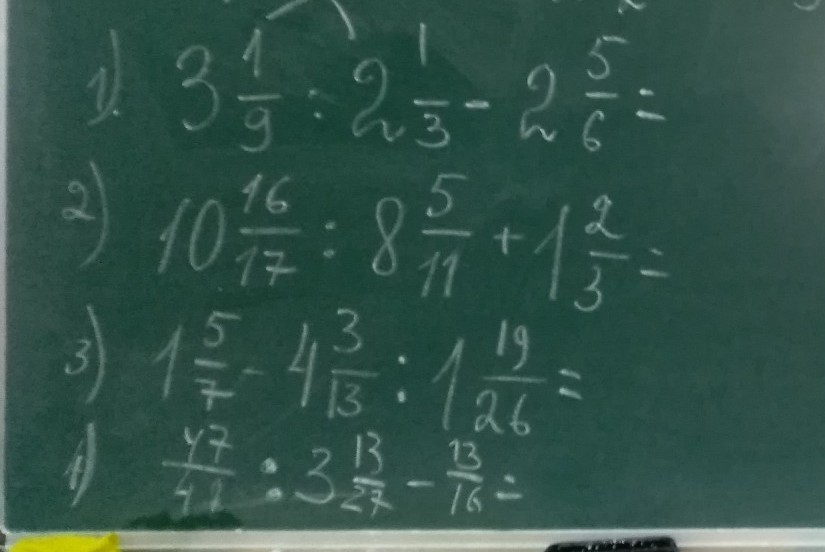 1). 3 1/9 : 2 1/3 - 2 5/6 =
2) 10 16/17 : 8 5/11 + 1 2/3 =
3) 1 5/7 - 4 3/13 : 1 19/26 =
4) 47/41 : 3 13/27 - 13/16 =